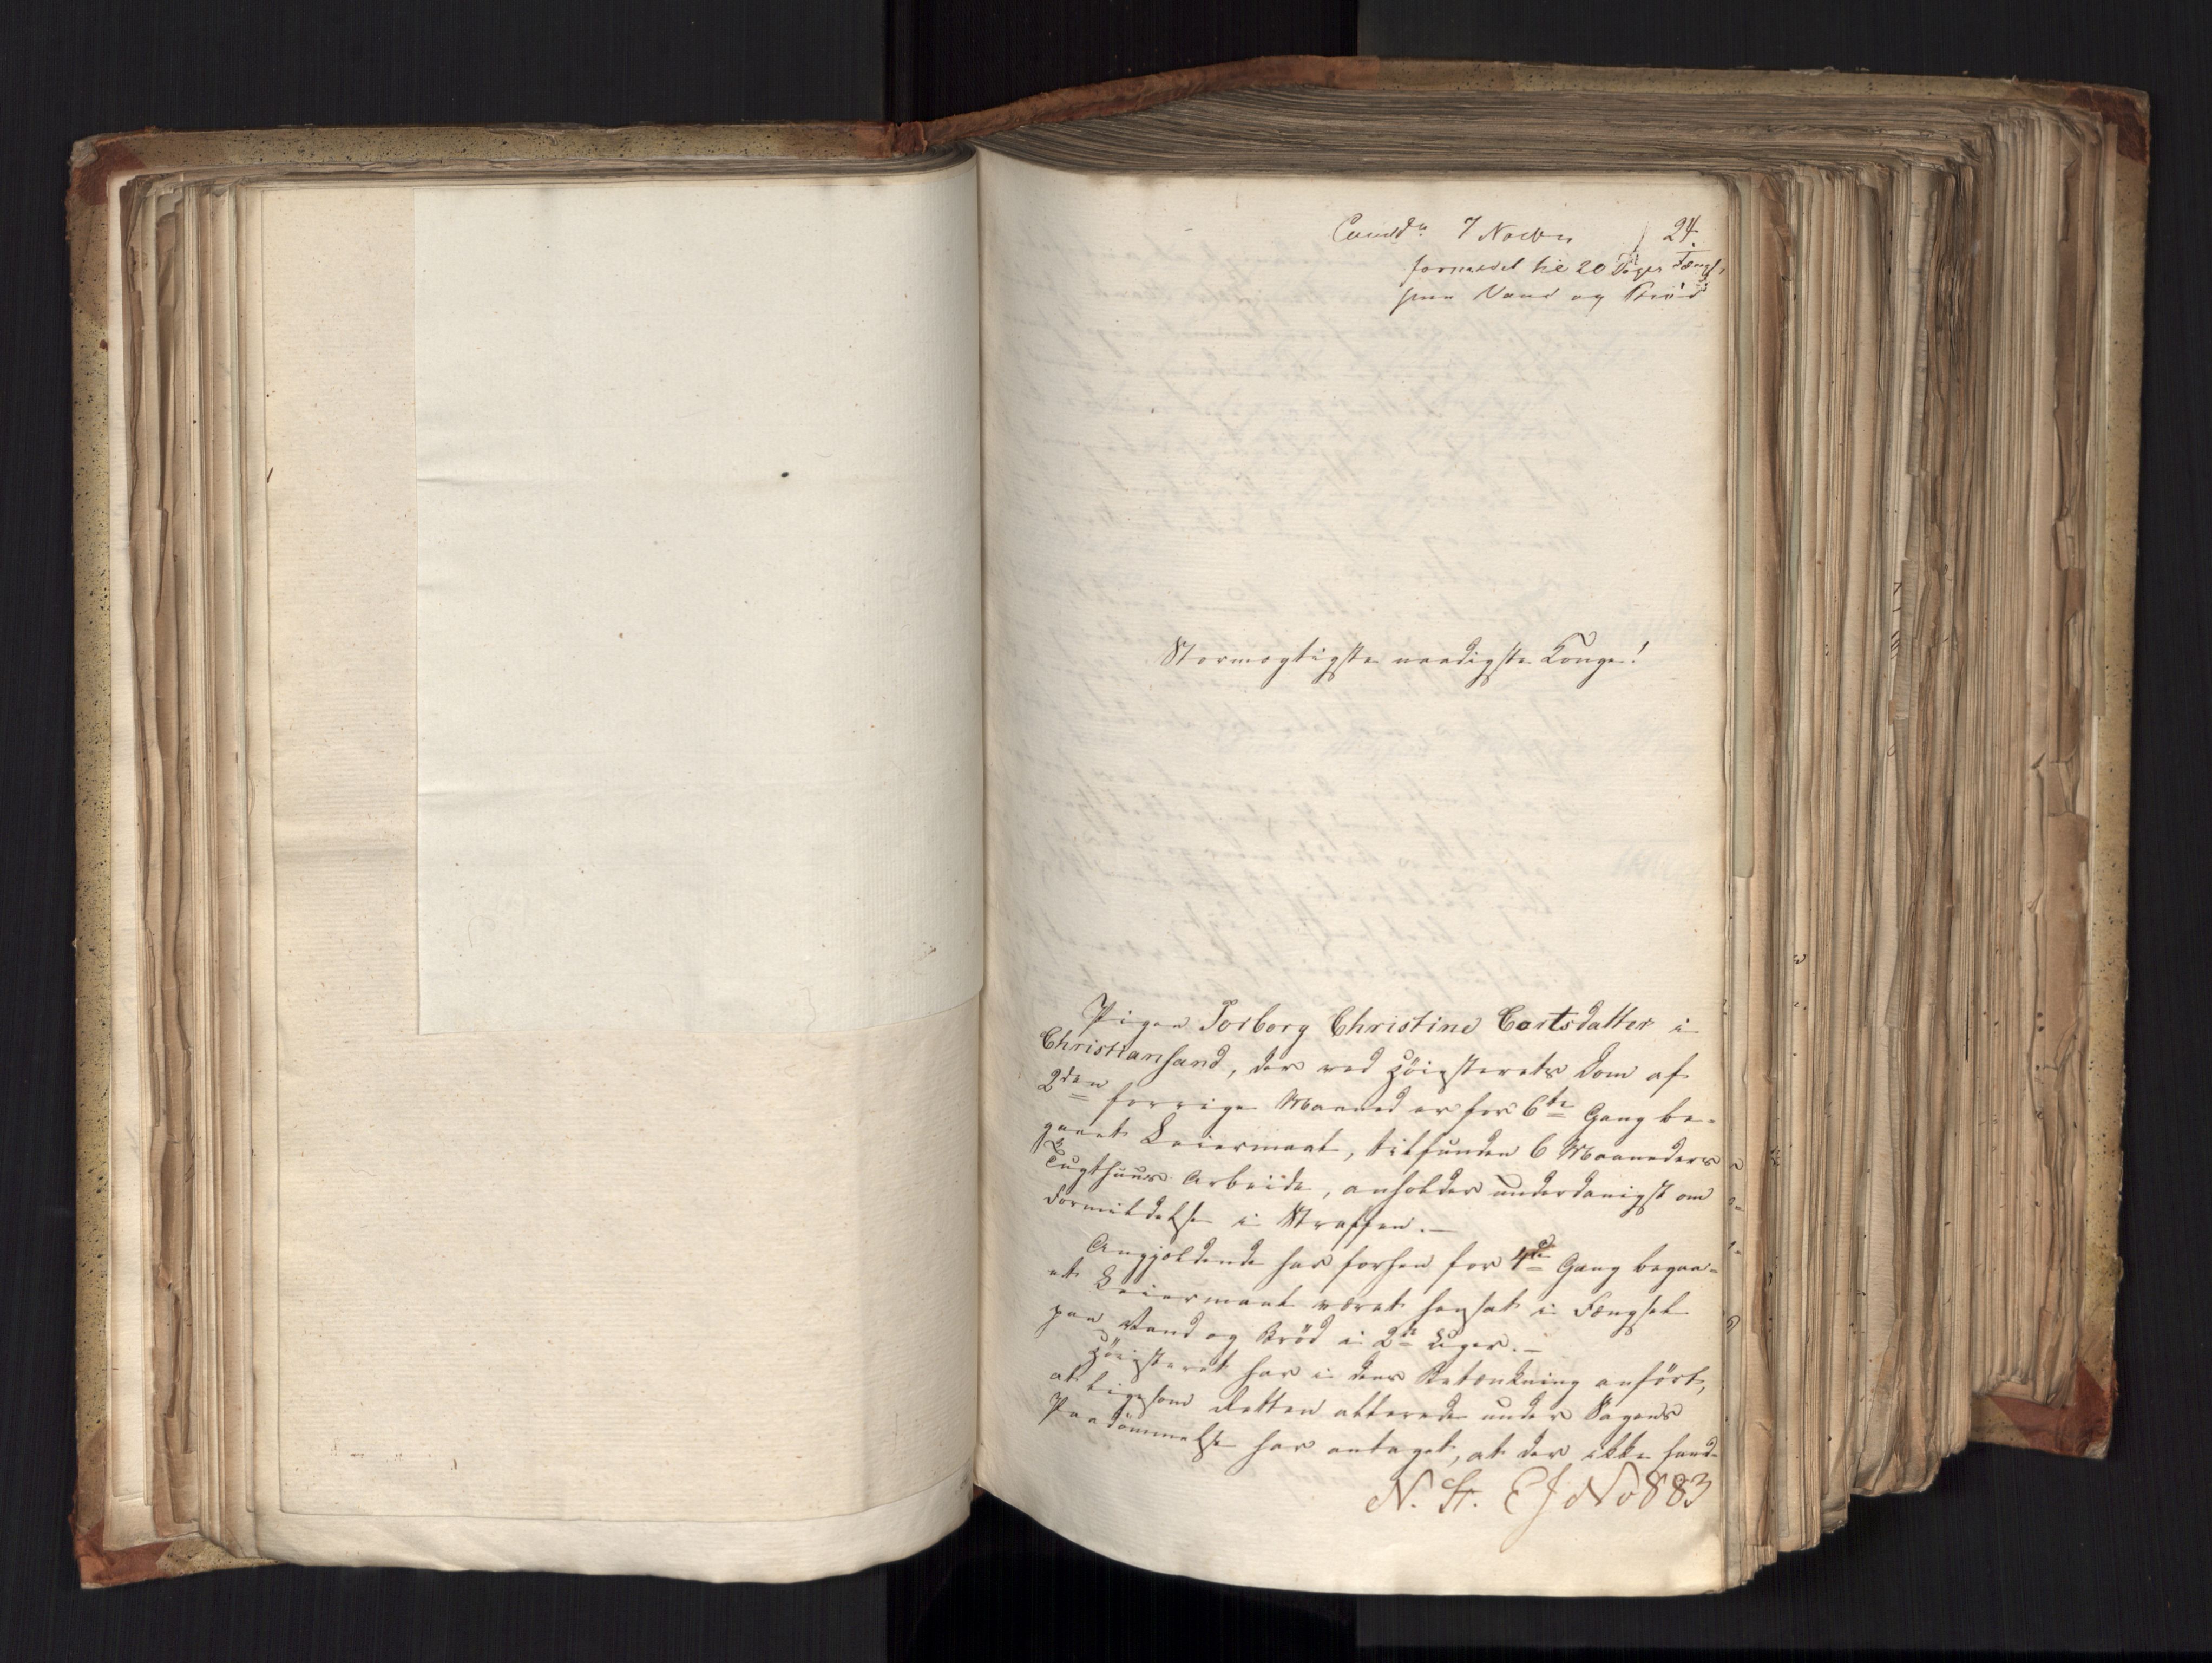 7 Novbr 24.
formildet til 20 Dages Fængs
paa Vand og Brød
Stormægtigste naadigste Konge!
Pigen Torborg Christine Cortsdatter i
Christiansand, der ved Høiesterets Dom af
2den forrige Maaned er for 6te Gang be-
gaaet Leiermaal, tilfunden 6 Maaneders
Tugthuus Arbeide, anholder underdanigst om
Formildelse i Straffen.-
Angjeldende har forhen for 4de Gang begaa-
et Leiermaal været hensat i Fængsel
paa Vand og Brød i 2de Uger.-
Høiesteret har i dens Betænkning anført,
at ligesom Retten allerede under Sagens
Paadømmelse har antaget, at der ikke fand-
N. St. E J No 883